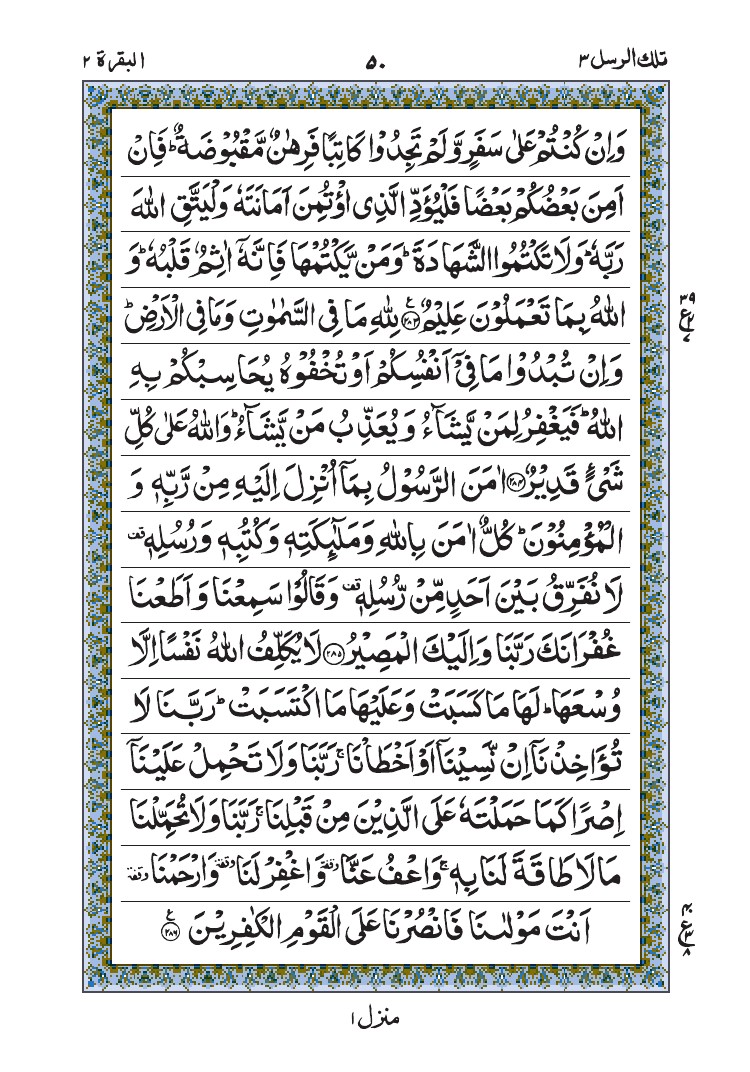 تلك الرسل ٣ ٥٠ البقرة ٢
وَاِنْ كُنْتُمْ عَلٰى سَفَرٍ وَّلَمْ تَجِدُوْا كَاتِبًا فَرِهٰنٌ مَّقْبُوْضَةٌ ؕ فَاِنْ
اَمِنَ بَعْضُكُمْ بَعْضًا فَلْيُؤَدِّ الَّذِى اؤْتُمِنَ اَمَانَتَهٗ وَلْيَتَّقِ اللّٰهَ
رَبَّهٗ ؕ وَلَا تَكْتُمُوا الشَّهَادَةَ ؕ وَمَنْ يَّكْتُمْهَا فَاِنَّهٗۤ اٰثِمٌ قَلْبُهٗ ؕ وَ
اللّٰهُ بِمَا تَعْمَلُوْنَ عَلِيْمٌ ﴿٢٨٣﴾ لِلّٰهِ مَا فِى السَّمٰوٰتِ وَمَا فِى الْاَرْضِ ؕ
وَاِنْ تُبْدُوْا مَا فِىْۤ اَنْفُسِكُمْ اَوْ تُخْفُوْهُ يُحَاسِبْكُمْ بِهِ
اللّٰهُ ؕ فَيَغْفِرُ لِمَنْ يَّشَآءُ وَيُعَذِّبُ مَنْ يَّشَآءُ ؕ وَاللّٰهُ عَلٰى كُلِّ
شَىْءٍ قَدِيْرٌ ﴿٢٨٤﴾ اٰمَنَ الرَّسُوْلُ بِمَاۤ اُنْزِلَ اِلَيْهِ مِنْ رَّبِّهٖ وَ
الْمُؤْمِنُوْنَ ؕ كُلٌّ اٰمَنَ بِاللّٰهِ وَمَلٰٓئِكَتِهٖ وَكُتُبِهٖ وَرُسُلِهٖ قف
لَا نُفَرِّقُ بَيْنَ اَحَدٍ مِّنْ رُّسُلِهٖ قف وَقَالُوْا سَمِعْنَا وَاَطَعْنَا
غُفْرَانَكَ رَبَّنَا وَاِلَيْكَ الْمَصِيْرُ ﴿٢٨٥﴾ لَا يُكَلِّفُ اللّٰهُ نَفْسًا اِلَّا
وُسْعَهَا ؕ لَهَا مَا كَسَبَتْ وَعَلَيْهَا مَا اكْتَسَبَتْ ؕ رَبَّنَا لَا
تُؤَاخِذْنَاۤ اِنْ نَّسِيْنَاۤ اَوْ اَخْطَاْنَا ۚ رَبَّنَا وَلَا تَحْمِلْ عَلَيْنَاۤ
اِصْرًا كَمَا حَمَلْتَهٗ عَلَى الَّذِيْنَ مِنْ قَبْلِنَا ۚ رَبَّنَا وَلَا تُحَمِّلْنَا
مَا لَا طَاقَةَ لَنَا بِهٖ ۚ وَاعْفُ عَنَّا وقفة وَاغْفِرْ لَنَا وقفة وَارْحَمْنَا وقفة
اَنْتَ مَوْلٰىنَا فَانْصُرْنَا عَلَى الْقَوْمِ الْكٰفِرِيْنَ ﴿٢٨٦﴾
٣٩
ع
٧
ع
٨
منزل ١